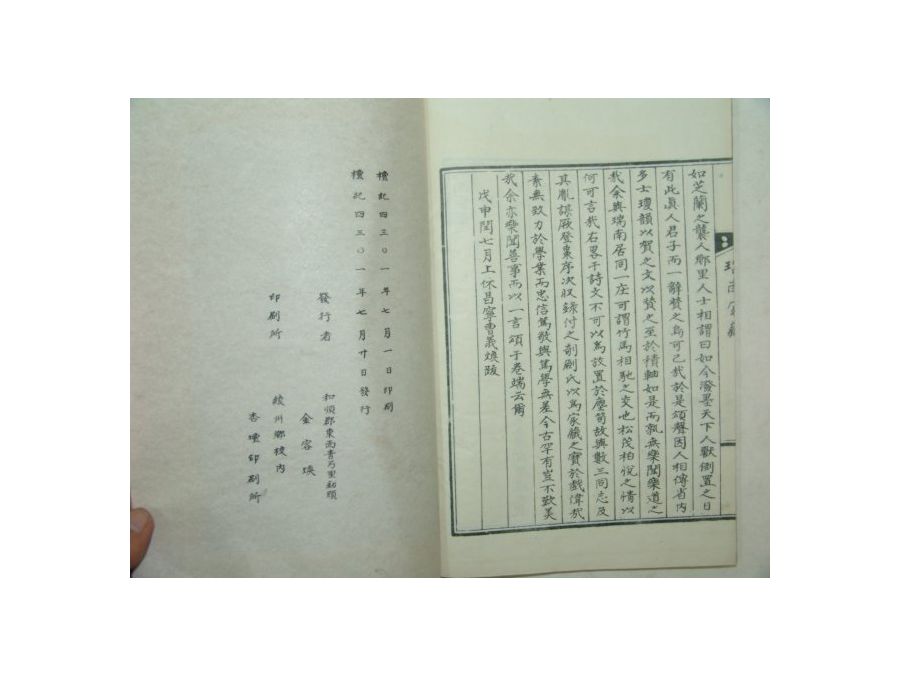 如芝蘭之襲人鄕里人士相謂曰如今潑墨天下人獸倒置之日
有此眞人君子而一辭贊之烏可已哉於是頌聲因人相傳省內
多士瓊韻以賀之文以贊之至於積軸如是而孰無樂聞樂道之
哉余與瑞南居同一庄可謂竹馬相馳之交也松茂柏悅之情以
何可言哉右畧干詩文不可以爲設置於塵筍故與數三同志及
其胤謀厥登棗序次收錄付之剞劂氏以爲家藏之寶於戲偉哉
素無致力於學業而忠信篤敬與篤學無差今古罕有豈不歎美
哉余亦樂聞善事而以一言頌于卷端云爾
戊申閏七月上休昌寧曺義煥跋
檀紀四三〇一年七月一日印刷
檀紀四三〇一年七月廿日發行
發行者
和順郡東面靑乃里
金容煐
印刷所
綾州鄕校內
杏壇印刷所